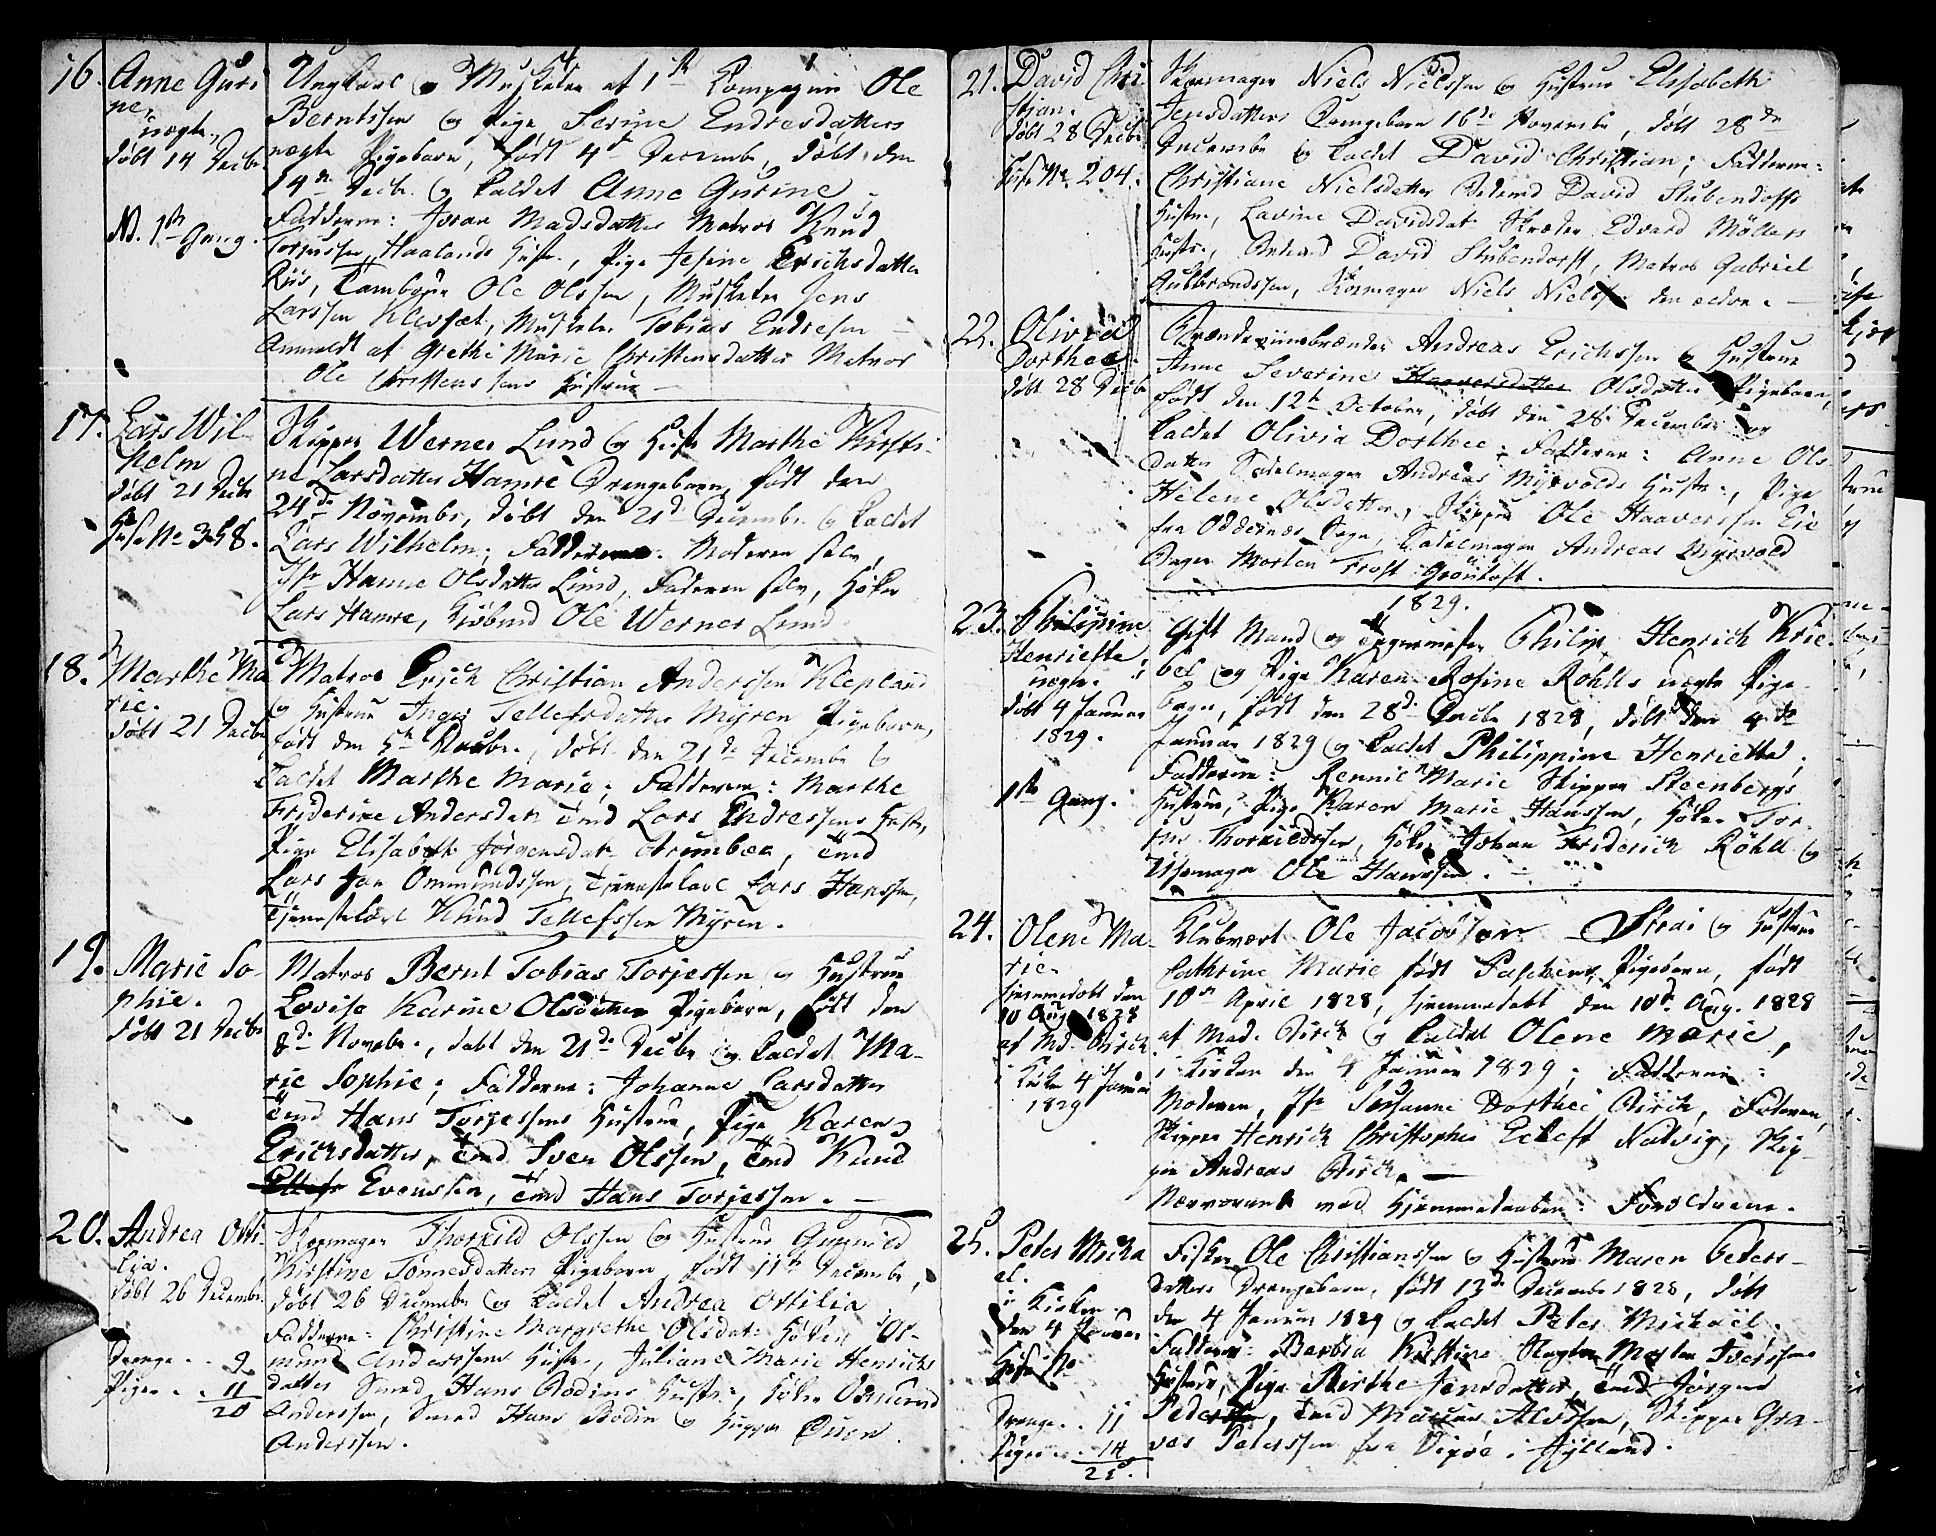 16. Anne Guri
ne,
uægte,
døbt 14 Decbr
N. 1ste Gang.
Ungkarl og Musketer af 1ste Compagnie Ole
Berntssen og Pige Serine Endresdatters
uægte Pigebarn, født 4de Decembr, døbt den
14de Decbr. og kaldet Anne Gurine.
Fadderne: Madsdatter Matros Knud
Torjussen Haalands Hustr., Pige Jesine Erichsdatter
Riis, Tambour Ole Olssen, Musketer Jens
Larssen Klevset, Musketer Tobias Endresen
Anmeldt af Grethe Marie Christensdatter Matros
Ole Christensens Hustrue
17. Lars Wil-
helm
døbt 21 Decbr
Huse No 358.
Skipper Werner Lund og Hustr Marthe Kirsti-
ne Larsdatter Hamre Drengebarn, født den
24de Novembr, døbt den 21de Decembr og kaldet
Lars Wilhelm; Fadderne: Moderen selv,
Jfr Hanne Olsdatter Lund, Faderen selv, Høker
Lars Hamre, Ole Werner Lund.
18. Marthe Ma
rie.
døbt 21 Decbr
Matros Erich Christian Anderssen Klepland
og Hustrue Inger Tellefsdatter Myren Pigebarn,
født den 5te Decbr., døbt den 21de Decembr og
kaldet Marthe Marie; Fadderne: Marthe
Friderine Andersdatr Tmd Lars Endressens Hustr,
Pige Elisabeth Jørgensdatr Trumbek, Tmd
Lars Jan Ommundssen, Tjenestekarl Lars Hanssen,
Tjenestekarl Knud Tellefssen Myren.
19. Marie So-
phie.
døbt 21 Decbr
Matros Bernt Tobias Torjessen og Hustrue
Lovise Karine Olsdatter Pigebarn, født den
8de Novebr., døbt den 21de Decbr og kaldet Ma-
rie Sophie; Fadderne: Johanne Larsdatter
Tmd Hans Torjessens Hustrue, Pige Karen
Erichsdatter, Tmd Sven Olssen, Tmd Knud
Evenssen, Tmd Hans Torjessen.
20. Andrea Otti-
lia.
døbt 26 Decembr.
Drenge .. 9
Piger .. 11
20
Skomager Thorkild Olssen og Hustrue Gunnild
Kirstine Tønnesdatters Pigebarn født 11te Decembr,
døbt 26 Decembr og kaldet Andrea Ottilia
Fadderne: Christine Margrethe Olsdatr Høker Os-
mund Anderssens Hustr., Juliane Marie Henrichs
datter Smed Hans Bodins Hustr., Høker Osmund
Anderssen, Smed Hans Bodin og Skipper Ouen
Anderssen.
21. David Chri
stjan.
døbt 28 Decbr
Huse No. 204.
Skomager Niels Nielssen og Hustrue Elisabeth
Jensdatters Drengebarn 16de Novembr, døbt 28de
Decembr og kaldet David Christian; Fadderne:
Christiane Nielsdatter David Stubendorffs
Hustr., Lavine Davidsdatr Skræder Edvard Møllers
Hustr., David Stubendorff, Matros Gabriel
Gulbrandssen, Skomager Niels Nielss. den ældre.
22. Olivia
Dorthea.
døbt 28 Decbr
Brændeviinsbrænder Andreas Erichssen og Hustrue
Anne Severine Haaversdatter Olsdatter Pigebarn,
født den 12te October, døbt den 28 December og
kaldet Olivia Dorthee; Fadderne: Anne Ols
datter Sadelmager Andreas Myrvolds Hustr., Pige
Helene Olsdatter, Skipper Ole Haaverssen Eie
fra Oddernes Sogn, Sadelmager Andreas Myrvold
Bager Morten Frost Grøntoft.
1829.
23. Philipine
Henriette
uægte.
døbt 4 Januar
1829.
1ste Gang.
Gift Mand og Philip Henrich Krie-
bel og Pige Karen Rosine Røhlls uægte Pige-
barn, født den 28de Decbr 1828, døbt den 4de
Januar 1829 og kaldet Philippine Henriette;
Fadderne: Rennie Marie Skipper Steenbergs
Hustrue, Pige Karen Marie Hanssen, Høker Tor-
Thorkildssen, Høker Johan Friderich Røhll og
Ole Hanssen.
24. Olene Ma-
rie.
hjemmedøbt den
10 Aug 1828
af Md. Birch
i Kirken 4 Januar
1829
Klubvært Ole Jacobsen Strai og Hustrue
Cathrine Marie født Paschens Pigebarn, født
10de April 1828, hjemmedøbt den 10de Aug. 1828
af Mad. Birch og kaldet Olene Marie,
i Kirken den 4 Januar 1829; Fadderne:
Moderen, Jfr Susanne Dorthea Birch, Faderen,
Skipper Henrich Christopher Eckeff Natvig, Skip-
per Andreas Birch.
Nærværende ved Hjemmedaaben: Forældrene.
25. Peter Micha
el.
i Kirken
den 4 Januar
Huse No
Drenge .. 11
Piger .. 14
25.
Fisker Ole Christianssen og Hustrue Maren Peders-
datters Drengebarn, født 13de December 1828, døbt
den 4 Januar 1829 og kaldet Peter Michael.
Fadderne: Barbra Kirstine Morten Iverssens
Hustrue, Pige Birthe Jensdatter, Tmd Jørgen
Pederssen, Tmd Alvssen, Skipper Gra-
ves Peterssen fra i Jylland.